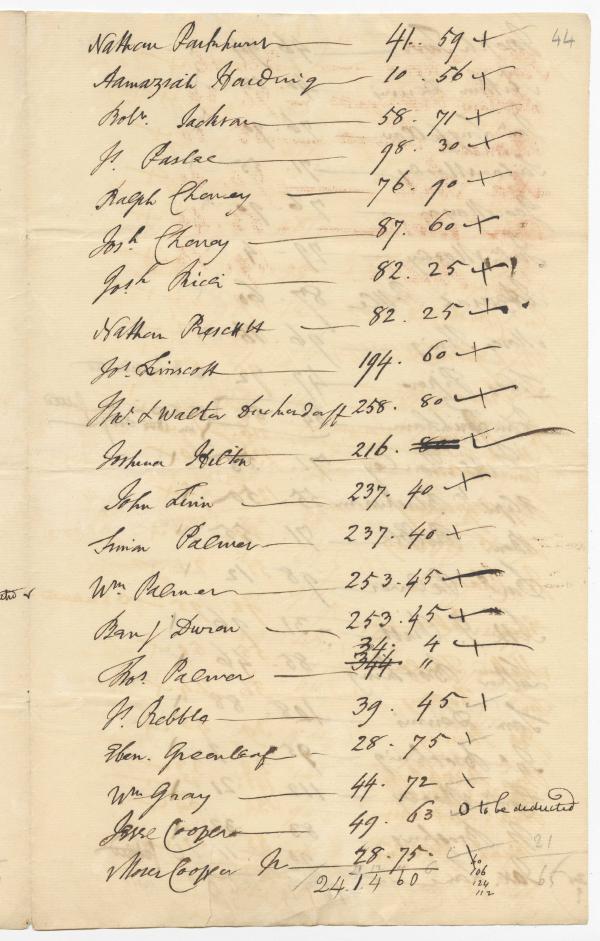 44
Nathan Parkhurst 41. 59 +
Aamaziah Harding 10. 56 +
Robt. Jackson 58. 71 +
Js. Paslee 98. 30 +
Ralph Cheney 76. 90 +
Josh Cheney 87. 60 +
Josh Ricci 82. 25 +
Nathan Prescott 82. 25 +
Jos. Linscott 194. 60 +
& Walter 258. 80 +
Joshua Hilton 216. 80
John Linn 237. 40 +
Simon Palmer 237. 40 +
Wm Palmer 253. 45 +
Benj Duren 253. 45 +
34. 4 +
Thos. Palmer 344 "
Js. Ribble 39. 45 +
Eben. Greenleaf 28. 75 +
Wm Gray 44. 72 +
Jesse Cooper 49. 63 0 to be deducted
21
Moses Cooper Jr 28. 75.
2414 60
106
124
112